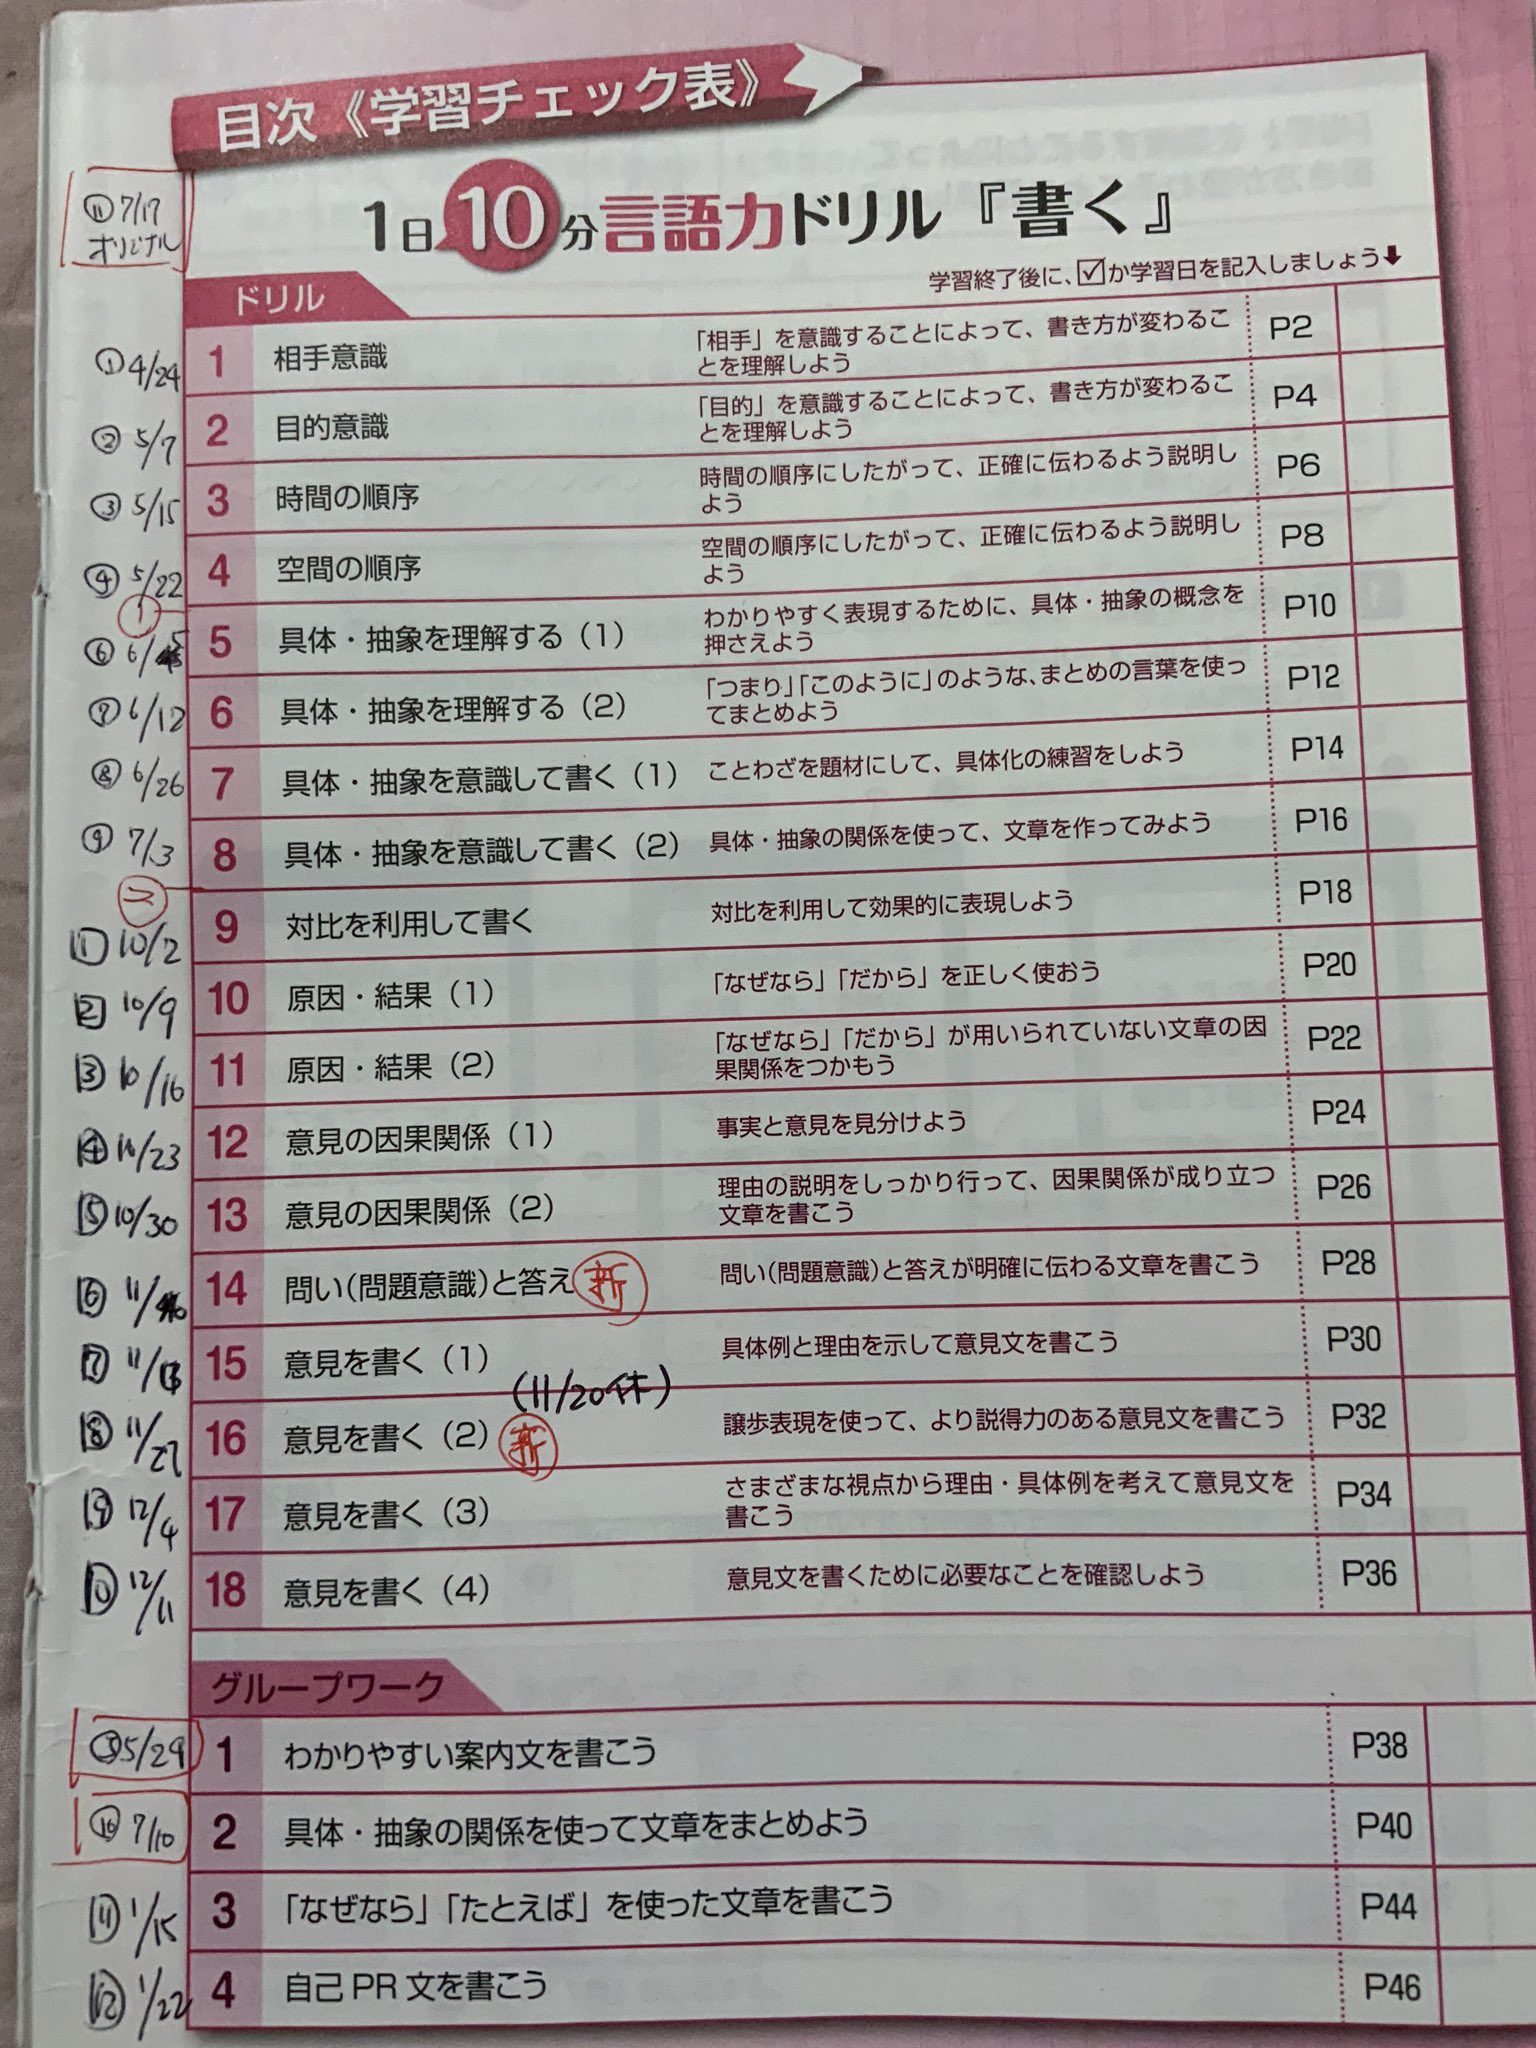 目次《学習チェック表》
⑪ 7/17
オリジナル
1日10分言語力ドリル『書く』
学習終了後に、☑か学習日を記入しましょう⬇
ドリル
① 4/24 1 相手意識 「相手」を意識することによって、書き方が変わるこ P2
とを理解しよう
② 5/7 2 目的意識 「目的」を意識することによって、書き方が変わるこ P4
とを理解しよう
③ 5/15 3 時間の順序 時間の順序にしたがって、正確に伝わるよう説明し P6
よう
④ 5/22 4 空間の順序 空間の順序にしたがって、正確に伝わるよう説明し P8
よう
⑥ 6/5 5 具体・抽象を理解する（1） わかりやすく表現するために、具体・抽象の概念を P10
押さえよう
⑦ 6/12 6 具体・抽象を理解する（2） 「つまり」「このように」のような、まとめの言葉を使っ P12
てまとめよう
⑧ 6/26 7 具体・抽象を意識して書く（1） ことわざを題材にして、具体化の練習をしよう P14
⑨ 7/3 8 具体・抽象を意識して書く（2） 具体・抽象の関係を使って、文章を作ってみよう P16
1 10/2 9 対比を利用して書く 対比を利用して効果的に表現しよう P18
2 10/9 10 原因・結果（1） 「なぜなら」「だから」を正しく使おう P20
3 10/16 11 原因・結果（2） 「なぜなら」「だから」が用いられていない文章の因 P22
果関係をつかもう
4 10/23 12 意見の因果関係（1） 事実と意見を見分けよう P24
5 10/30 13 意見の因果関係（2） 理由の説明をしっかり行って、因果関係が成り立つ P26
文章を書こう
6 14 問い（問題意識）と答え 問い（問題意識）と答えが明確に伝わる文章を書こう P28
7 11/13 15 意見を書く（1） 具体例と理由を示して意見文を書こう P30
（11/20休）
8 11/27 16 意見を書く（2） 譲歩表現を使って、より説得力のある意見文を書こう P32
9 12/4 17 意見を書く（3） さまざまな視点から理由・具体例を考えて意見文を P34
書こう
10 12/11 18 意見を書く（4） 意見文を書くために必要なことを確認しよう P36
グループワーク
⑤ 5/29 1 わかりやすい案内文を書こう P38
⑩ 7/10 2 具体・抽象の関係を使って文章をまとめよう P40
11 1/15 3 「なぜなら」「たとえば」を使った文章を書こう P44
12 1/22 4 自己PR文を書こう P46